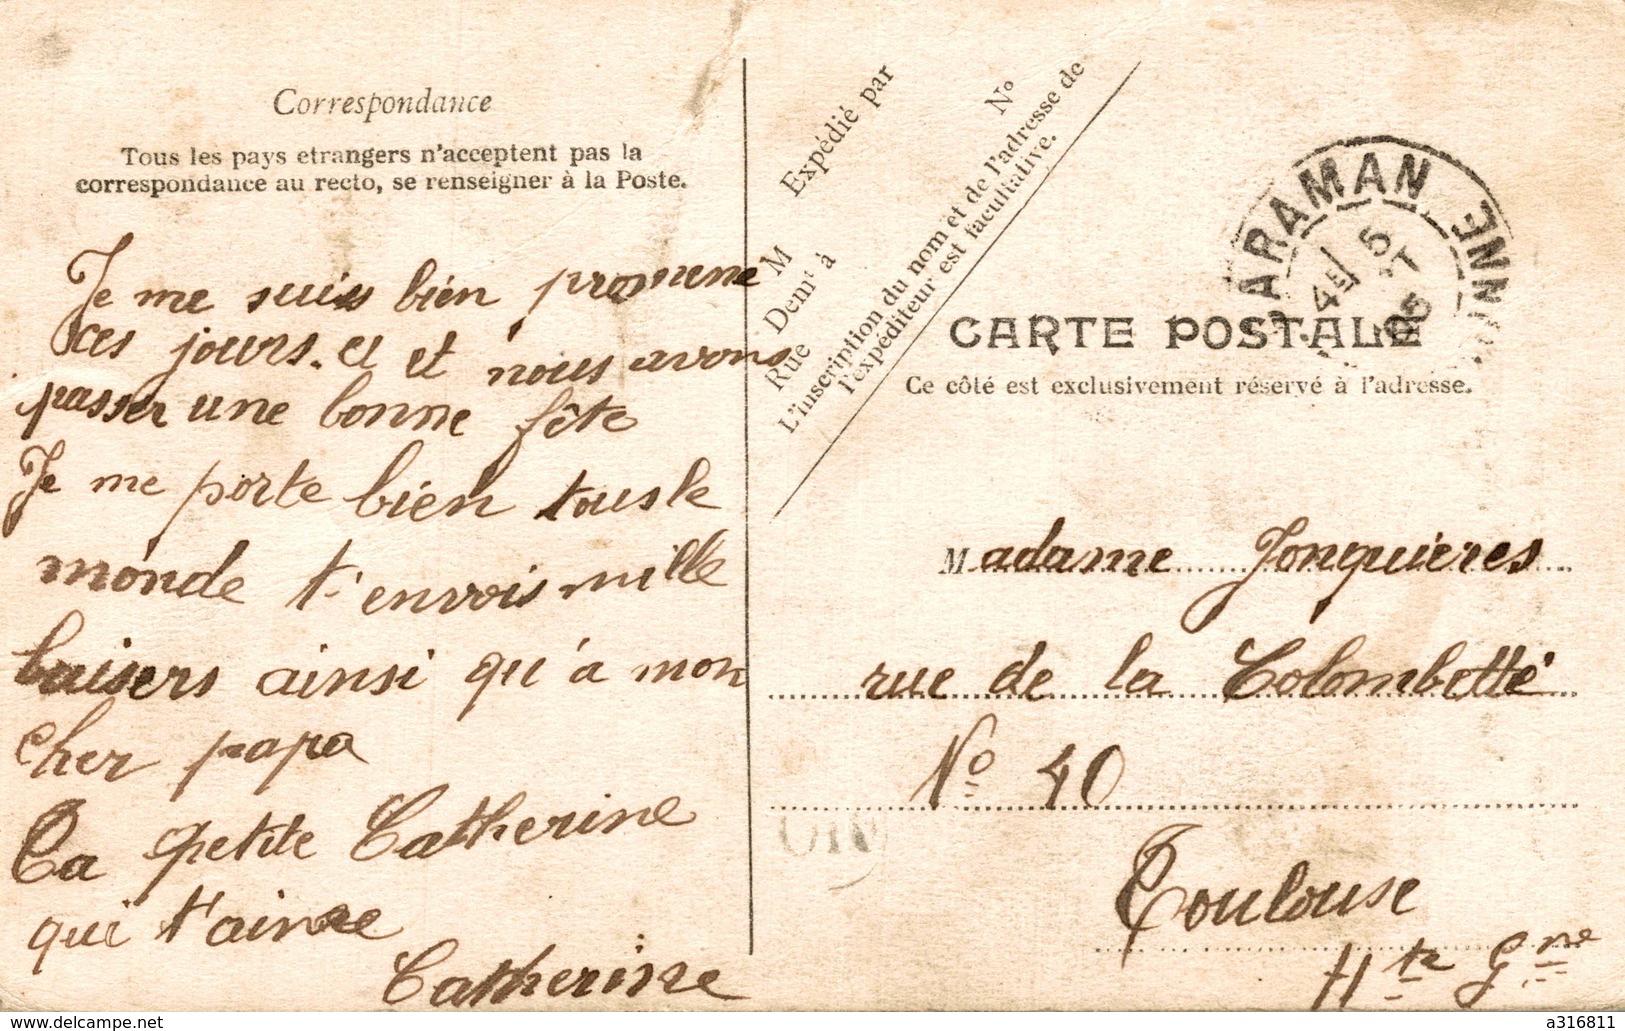 Correspondance
Tous les pays etrangers n'acceptent pas la
correspondance au recto, se renseigner à la Poste.
Je me suis bien promene
ces jours. et et nous avons
passer une bonne fête
Je me porte bien tous le
monde t'envois mille
baisers ainsi qu'a mon
cher papa
Ta petite Catherine
qui t'aime
Catherine
Expédié par
M
Rue Demt à
Nº
L'inscription du nom et de l'adresse de
l'expéditeur est facultative.
CARAMAN
CARTE POSTALE
Ce côté est exclusivement réservé à l'adresse.
Madame Jonquieres
rue de la Colombette
Nº 40
Toulouse
Hte Gne
delcampe.net
a316811